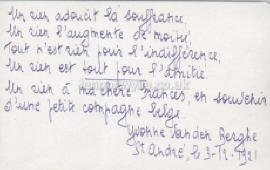 Un rien adoucit la souffrance,
Un rien l'augmente de moitié,
Tout n'est rien pour l'indifférence;
Un rien est tout pour l'amitié.
Un rien à ma chère Frances, en souvenir
d'une petite compagne belge.
Yvonne Vanden Berghe
St André, le 3-12-1921